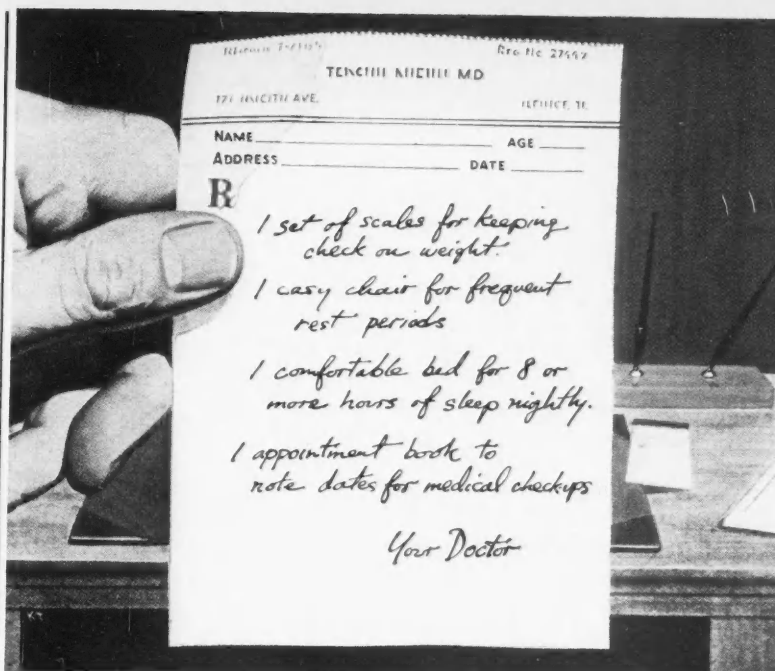 Reg. No. 27442
M.D.
AVE.
NAME AGE
ADDRESS DATE
R
1 set of scales for keeping
check on weight.
1 easy chair for frequent
rest periods
1 comfortable bed for 8 or
more hours of sleep nightly.
1 appointment book to
note dates for medical checkups
Your Doctor